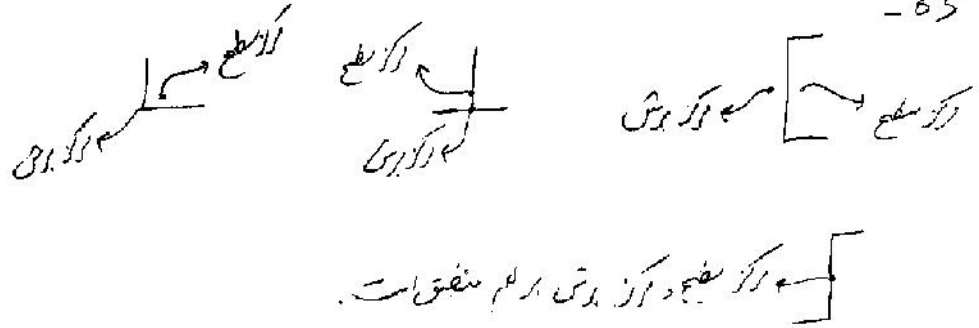 65-
مرکز سطح
مرکز برش
مرکز سطح
مرکز برش
مرکز سطح
مرکز برش
مرکز سطح و مرکز برش بر هم منطبق است.